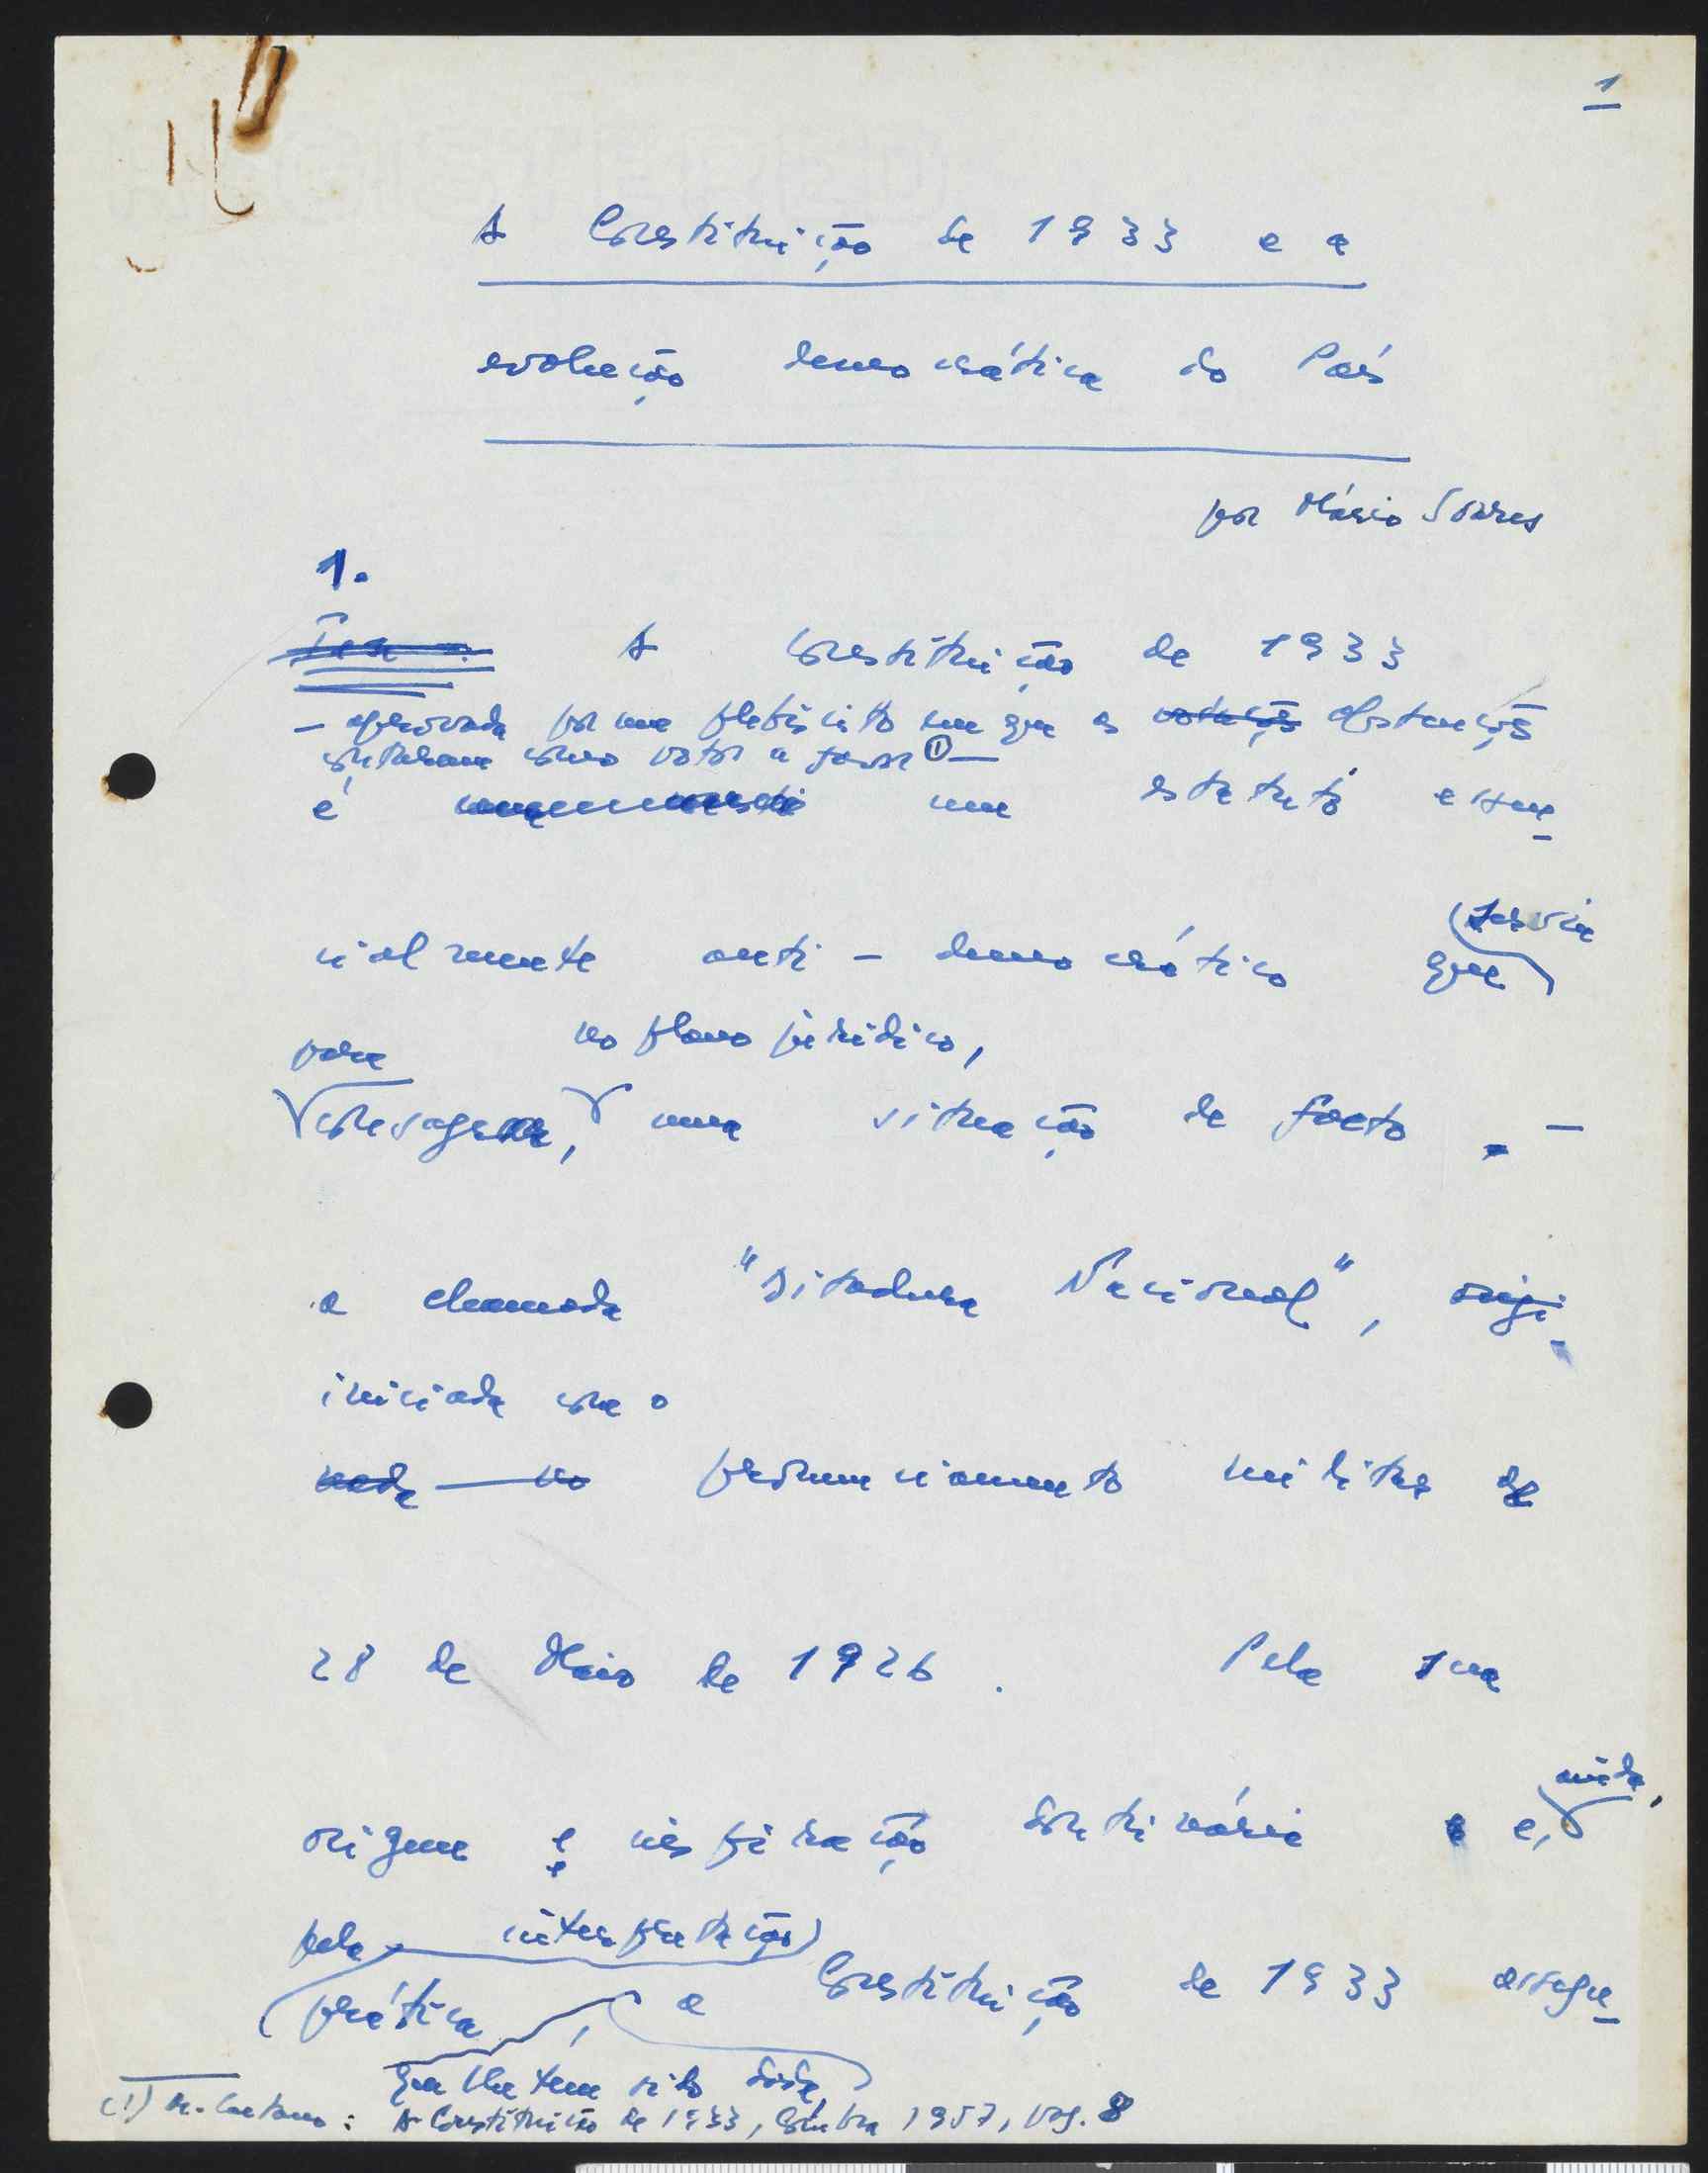 1
A Constituição de 1933 e a
evolução democrática do País
por Mário Soares
1.
A Constituição de 1933
– aprovada por um plebiscito em que as votações abstenções
contaram como votos a favor (1) –
é um estatuto essen-
servia
cialmente anti-democrático que
para no plano jurídico,
consagrar, uma situação de facto, –
a chamada "Ditadura Nacional", origi-
iniciada com o
nada no pronunciamento militar de
28 de Maio de 1926. Pela sua
ainda,
origem e inspiração doutrinária e,
pela interpretação
prática, a Constituição de 1933 assegu-
que lhe tem sido dada,
(1) M. Caetano: A Constituição de 1933, Coimbra 1957, pág. 8